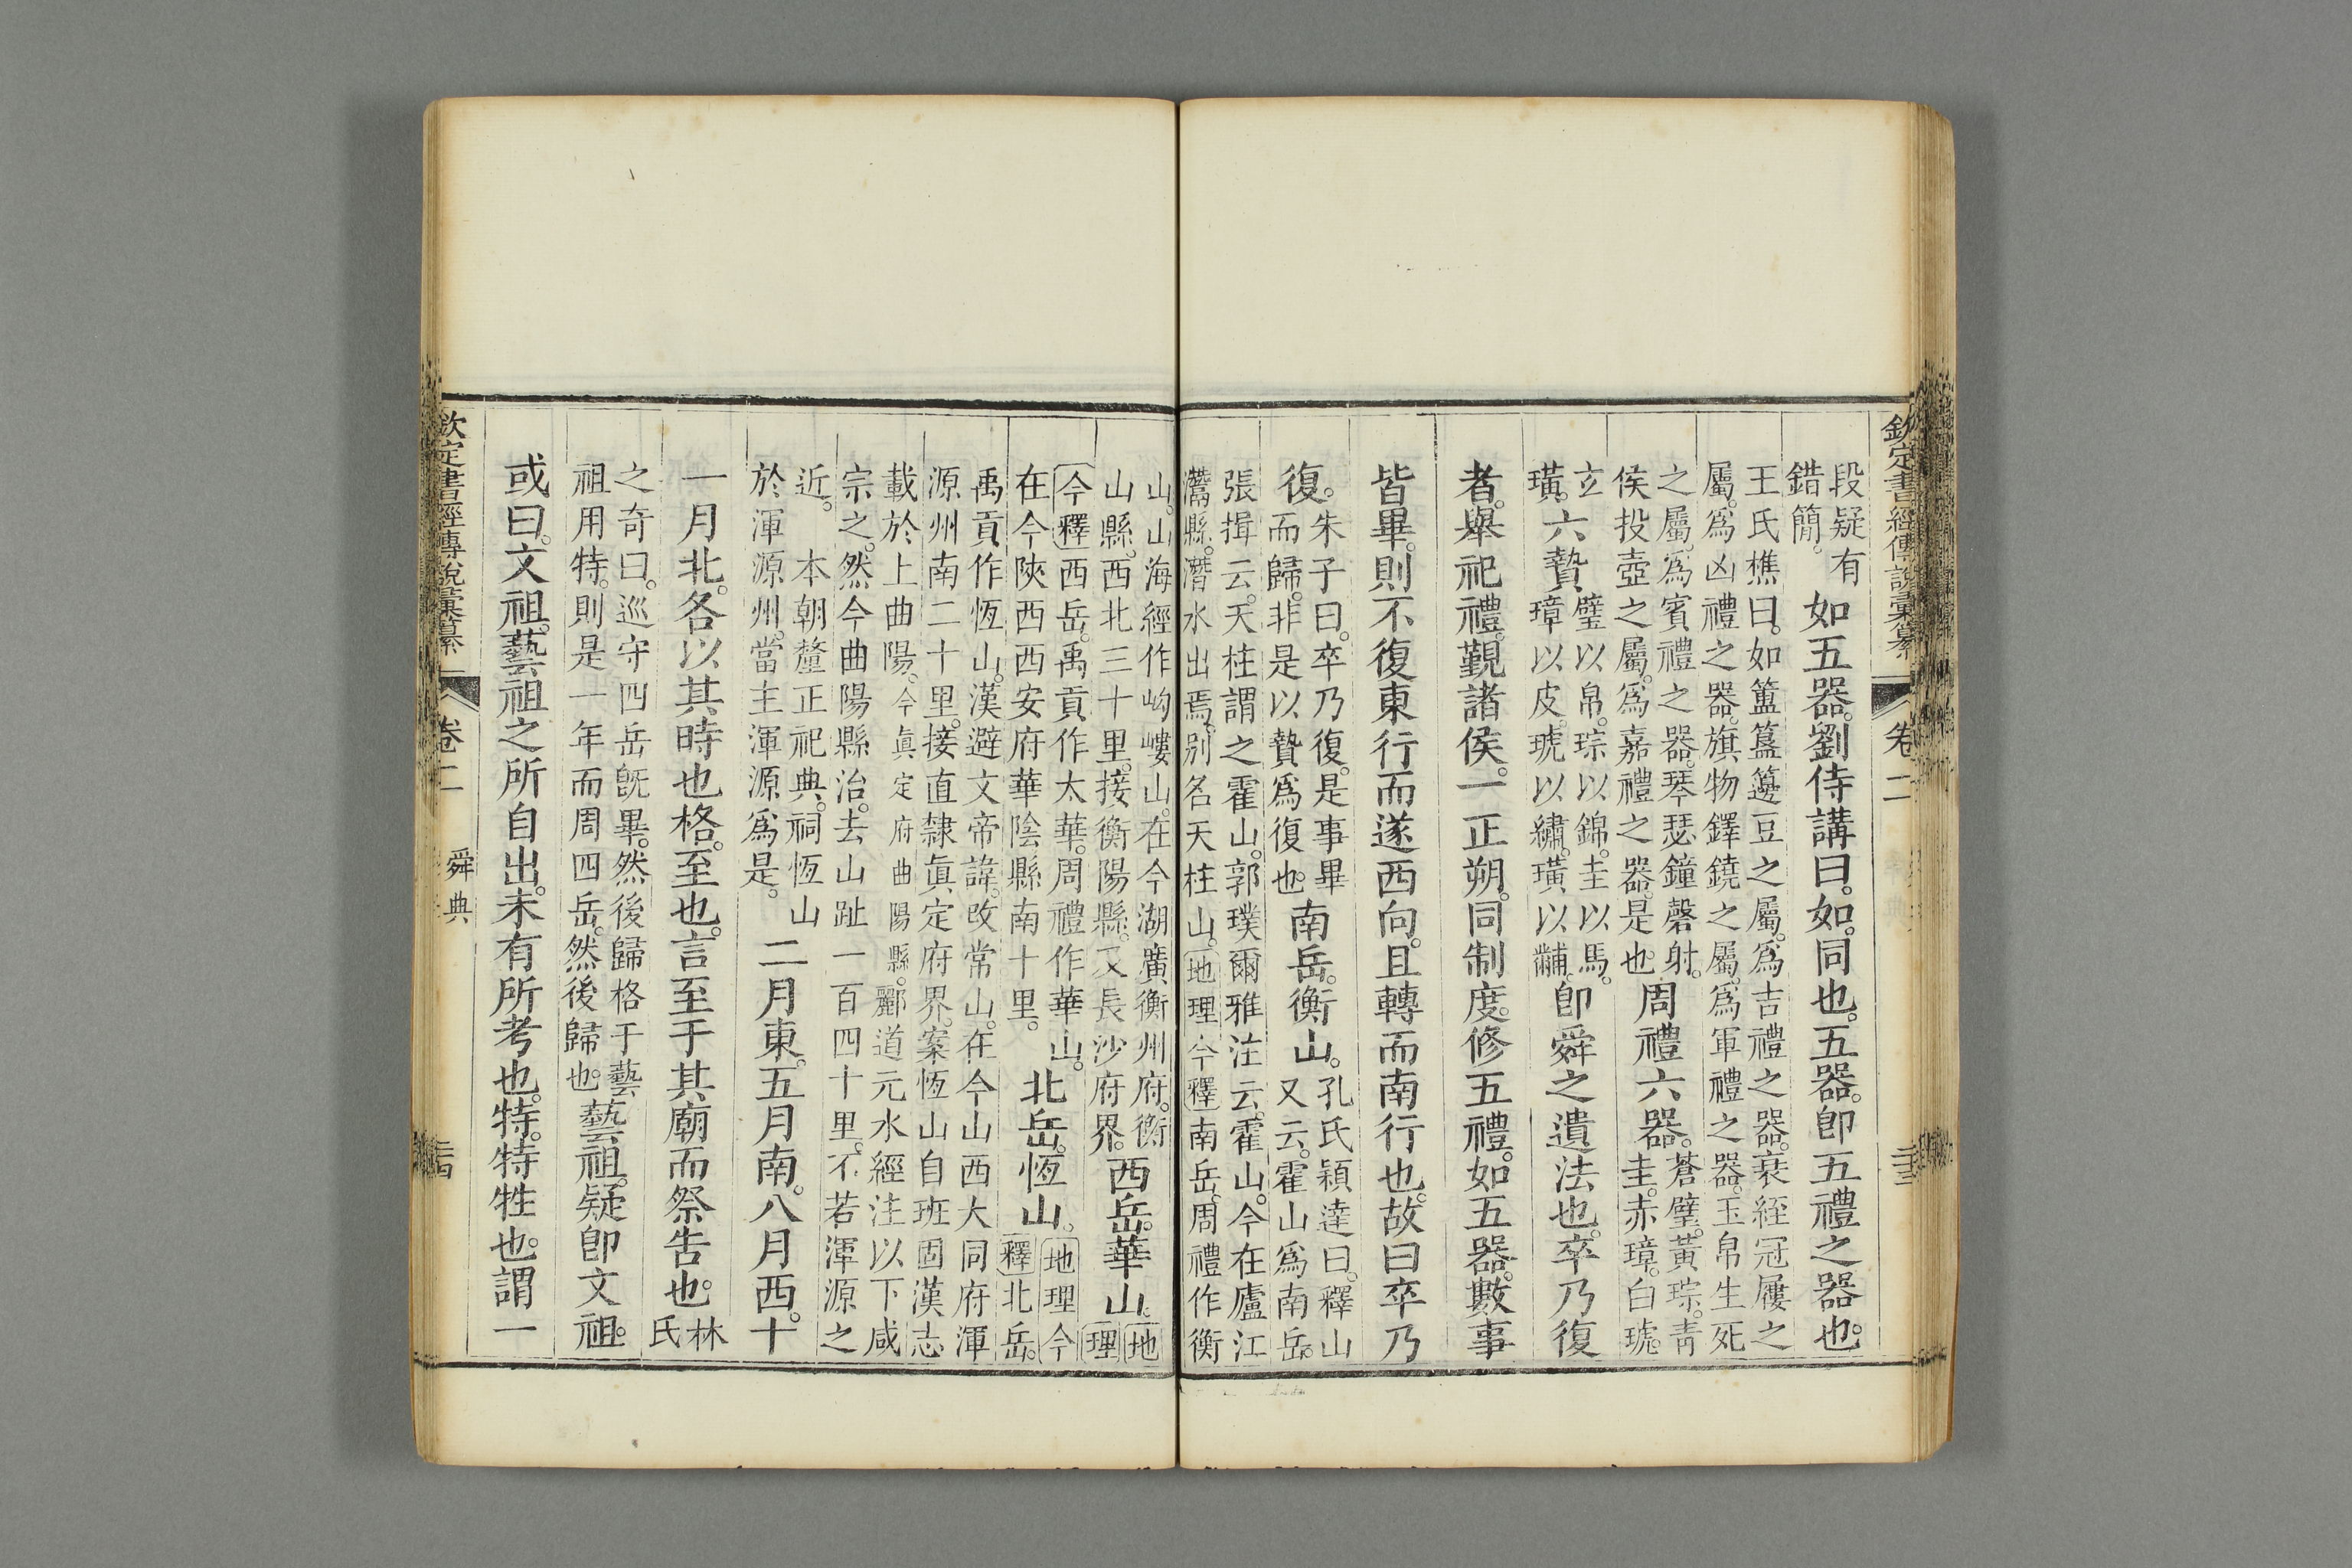 欽定書經傳說彙纂 卷二
段疑有
錯簡。
如五器。劉侍講曰。如。同也。五器。卽五禮之器也。
王氏樵曰。如簠簋籩豆之屬。爲吉禮之器。衰絰冠屨之
屬。爲凶禮之器。旗物鐸鐃之屬。爲軍禮之器。玉帛生死
之屬。爲賓禮之器。琴瑟鐘磬射
侯投壺之屬。爲嘉禮之器。是也。
周禮六器。
蒼璧。黃琮。靑
圭。赤璋。白琥。
玄
璜。
六贄
璧以帛。琮以錦。圭以馬。
璋以皮。琥以繡。璜以黼。
卽舜之遺法也。卒乃復
者。舉祀禮。覲諸侯。一正朔。同制度。修五禮。如五器。數事
皆畢。則不復東行而遂西向。且轉而南行也。故曰卒乃
復。
朱子曰。卒乃復。是事畢
而歸。非是以贄爲復也。
南岳。衡山。
孔氏穎達曰。釋山
又云。霍山爲南岳。
張揖云。天柱謂之霍山。郭璞爾雅注云。霍山。今在廬江
灊縣。潛水出焉。別名天柱山。地理今釋南岳。周禮作衡
山。山海經作岣嶁山。在今湖廣衡州府。衡
山縣。西北三十里。接衡陽縣。及長沙府界。
西岳。華山。
地
理
今釋西岳。禹貢作太華。周禮作華山。
在今陝西西安府華陰縣南十里。
北岳。恆山。
地理今
釋北岳。
禹貢作恆山。漢避文帝諱。改常山。在今山西大同府渾
源州南二十里。接直隸眞定府界。案恆山自班固漢志
載於上曲陽。今眞定府曲陽縣。酈道元水經注以下咸
宗之。然今曲陽縣治。去山趾一百四十里。不若渾源之
近。 本朝釐正祀典。祠恆山
於渾源州。當主渾源爲是。
二月東。五月南。八月西。十
一月北。各以其時也。格。至也。言至于其廟而祭告也。
林
氏
之奇曰。巡守四岳旣畢。然後歸格于藝
祖用特。則是一年而周四岳。然後歸也。
藝祖。疑卽文祖。
或曰。文祖。藝祖之所自出。未有所考也。特。特牲也。謂一
欽定書經傳說彙纂 卷二 舜典